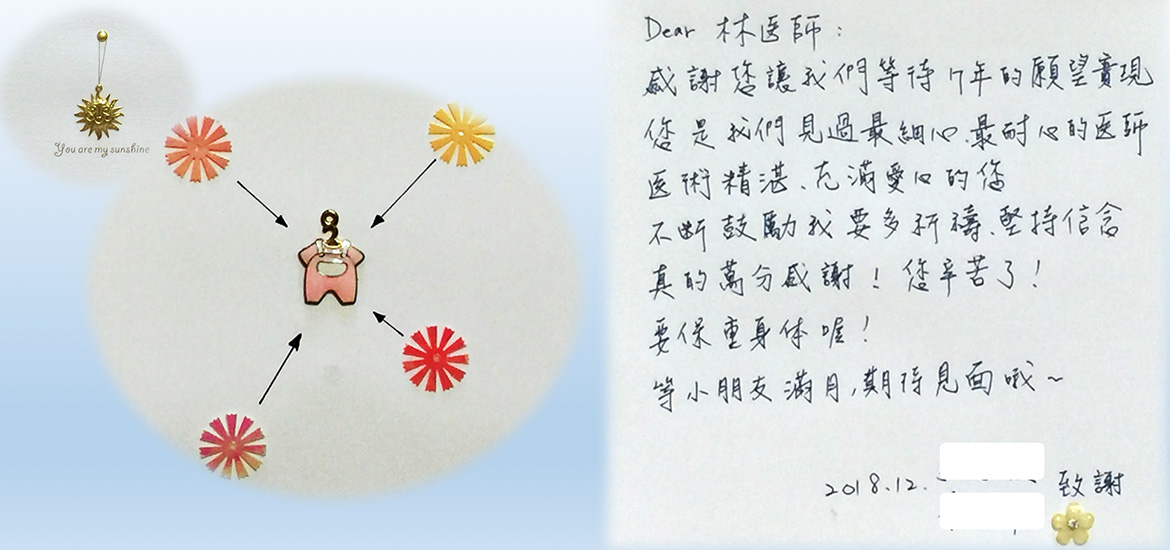 You are my sunshine
Dear 林医師：
感謝您讓我們等待7年的願望實現
您是我們見過最細心、最耐心的医師
医術精湛、充滿愛心的您
不断鼓勵我要多祈禱、堅持信念
真的萬分感謝！您辛苦了！
要保重身体喔！
等小朋友滿月，期待見面哦～
2018.12.
致謝